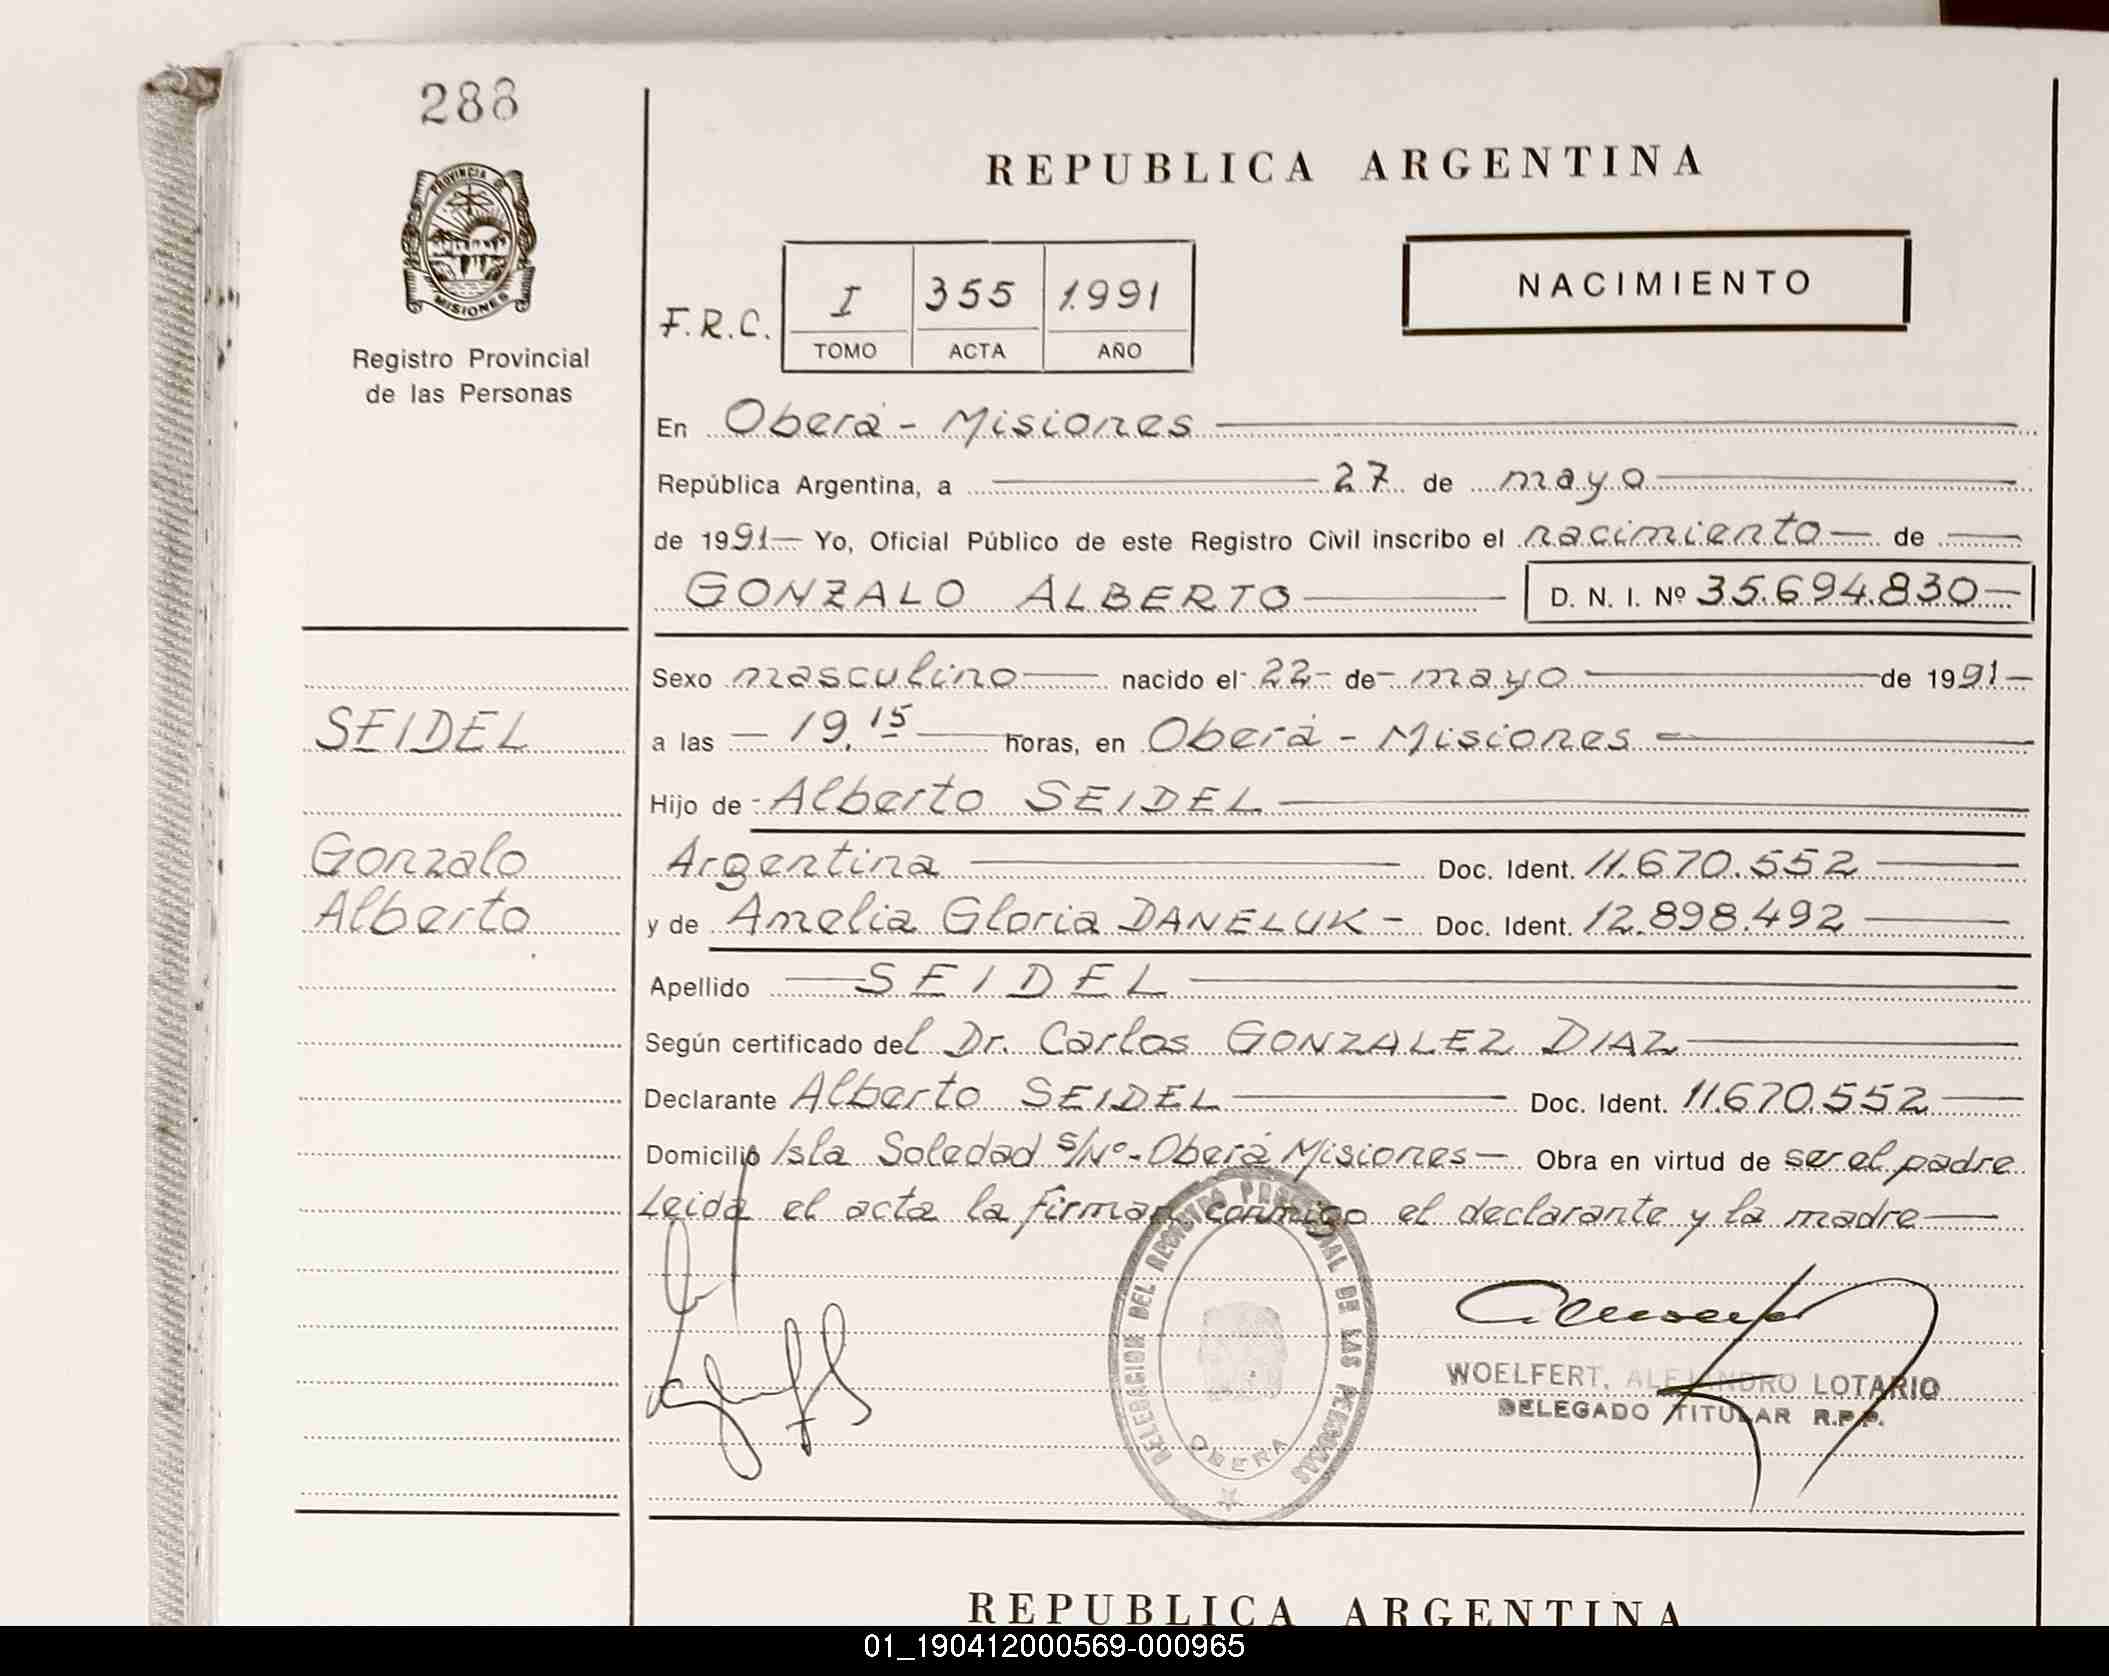 288
PROVINCIA DE
MISIONES
Registro Provincial
de las Personas
SEIDEL
Gonzalo
Alberto
REPUBLICA ARGENTINA
NACIMIENTO
F.R.C. I 355 1.991
TOMO ACTA AÑO
En Oberá - Misiones
República Argentina, a 27 de mayo
de 1991 Yo, Oficial Público de este Registro Civil inscribo el nacimiento de
GONZALO ALBERTO D. N. I. Nº 35.694.830
Sexo masculino nacido el 22 de mayo de 1991
a las 19,15 horas, en Oberá - Misiones
Hijo de Alberto SEIDEL
Argentina Doc. Ident. 11.670.552
y de Amelia Gloria DANELUK - Doc. Ident. 12.898.492
Apellido SEIDEL
Según certificado del Dr. Carlos GONZALEZ DIAZ
Declarante Alberto SEIDEL Doc. Ident. 11.670.552
Domicilio Isla Soledad s/Nº - Oberá Misiones - Obra en virtud de ser el padre
Leida el acta la firman conmigo el declarante y la madre
DELEGACION DEL REGISTRO PROVINCIAL DE LAS PERSONAS
OBERA
WOELFERT, ALEJANDRO LOTARIO
DELEGADO TITULAR R.P.P.
REPUBLICA ARGENTINA
01_190412000569-000965